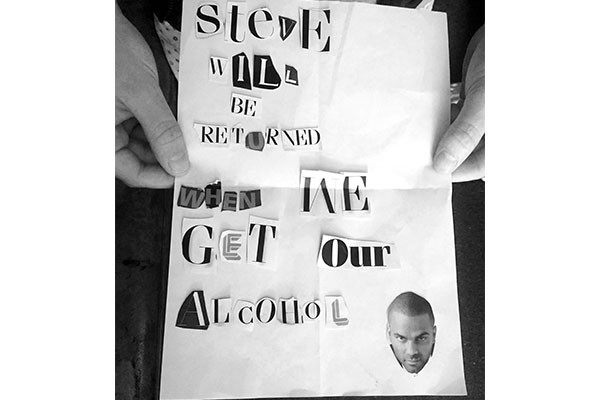 SteVE
WILL
BE
RETURNED
WHEN WE
GET Our
ALCOHOL